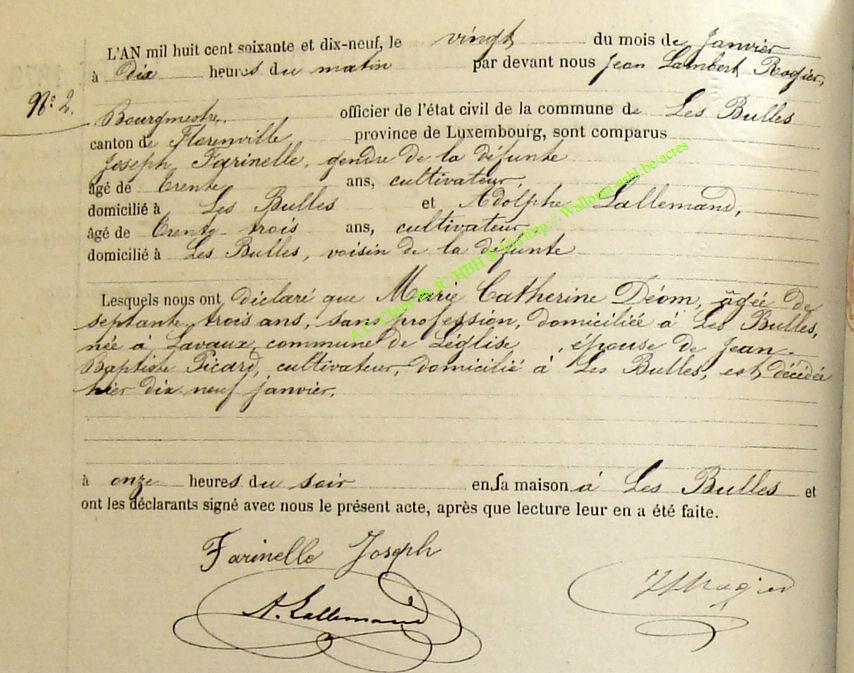 L'AN mil huit cent soixante et dix-neuf, le vingt du mois de Janvier
à Dix heures du matin par devant nous Jean Lambert Rogier,
N° 2.
Bourgmestre, officier de l'état civil de la commune de Les Bulles
canton de Florenville, province de Luxembourg, sont comparus
Joseph Farinelle, gendre de la défunte
âgé de trente ans, cultivateur,
domicilié à Les Bulles et Adolphe Lallemand,
âgé de trente-trois ans, cultivateur
domicilié à Les Bulles, voisin de la défunte
Lesquels nous ont déclaré que Marie Catherine Déom, âgée de
septante trois ans, sans profession, domiciliée à Les Bulles,
née à Lavaux, commune de Léglise, épouse de Jean-
Baptiste Picard, cultivateur, domicilié à Les Bulles, est décédée
hier dix neuf janvier,
à onze heures du soir en sa maison à Les Bulles et
ont les déclarants signé avec nous le présent acte, après que lecture leur en a été faite.
Farinelle Joseph
A. Lallemand
Rogier